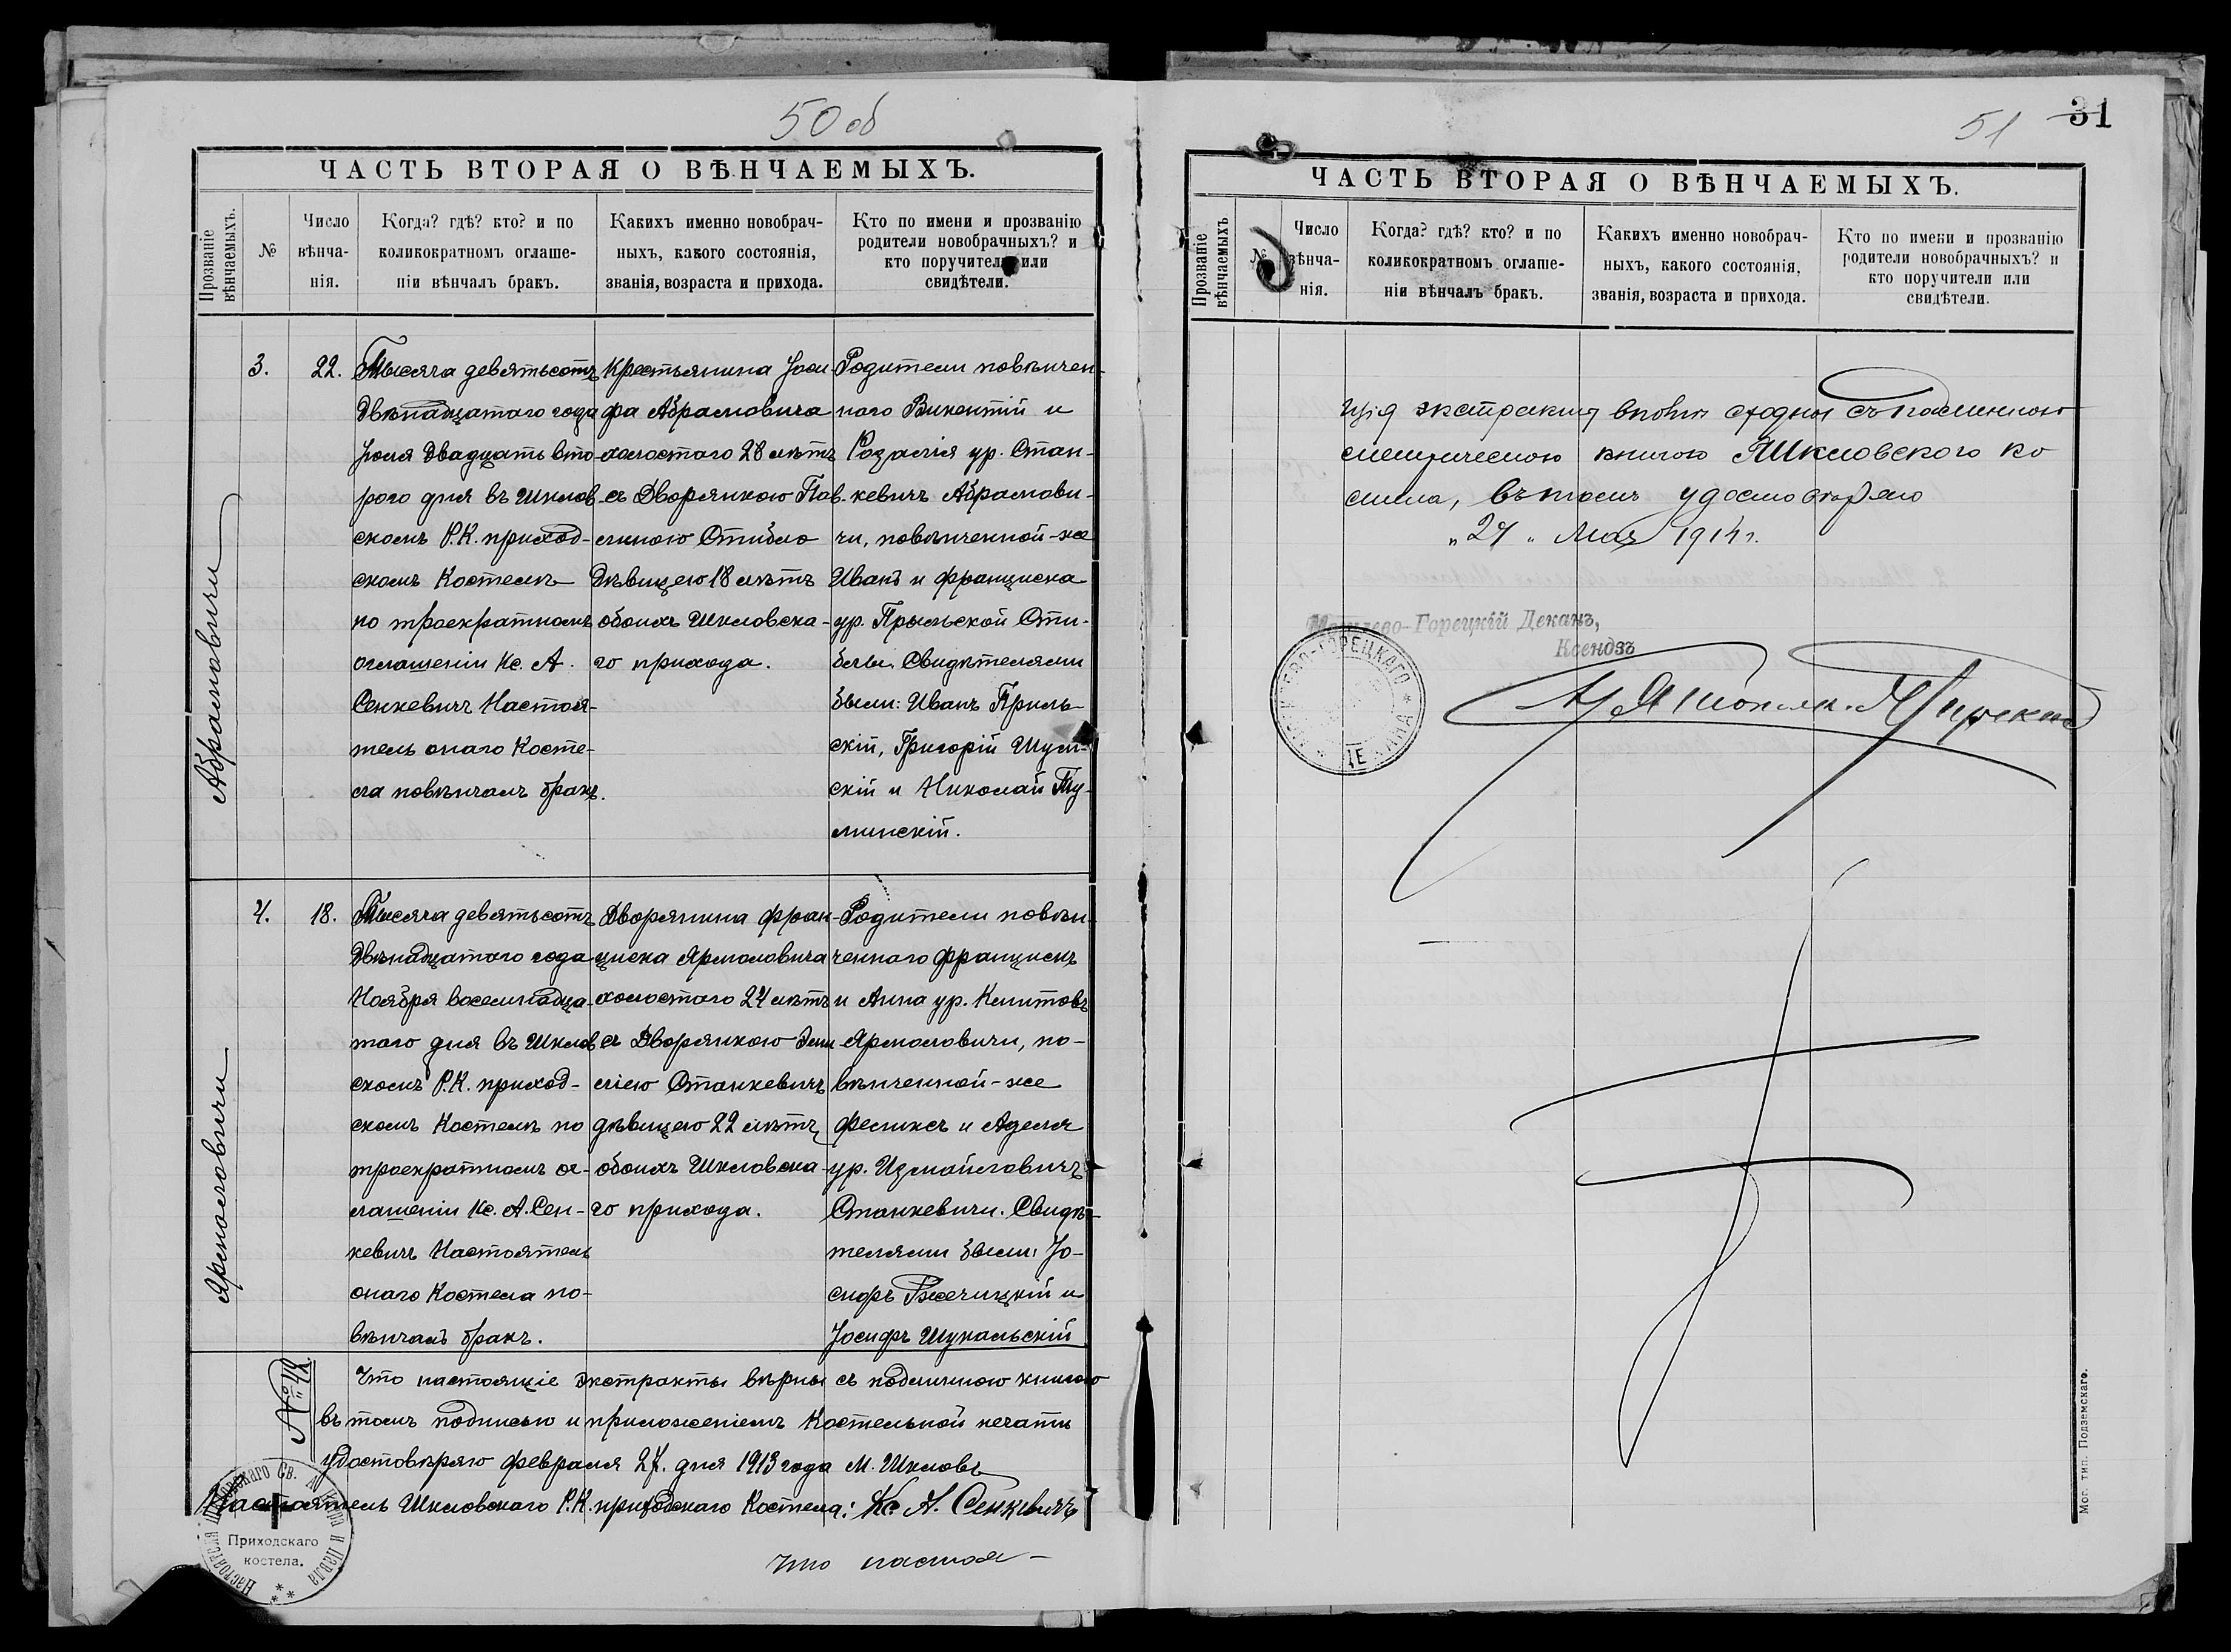 50 об
ЧАСТЬ ВТОРАЯ О ВѢНЧАЕМЫХЪ.
Прозваніе вѣнчаемыхъ.
№
Число вѣнча-нія.
Когда? гдѣ? кто? и по
коликократномъ оглаше-
ніи вѣнчалъ бракъ.
Какихъ именно новобрач-
ныхъ, какого состоянія,
званія, возраста и прихода.
Кто по имени и прозванію
родители новобрачныхъ? и
кто поручители или
свидѣтели.
Абрамовичи
3.
22.
Тысяча девятьсотъ
двѣнадцатаго года
Іюля двадцать вто-
рого дня въ Шклов-
скомъ Р.К. приход-
скомъ Костелѣ
по троекратномъ
оглашеніи Кс. А.
Сенкевичъ Настоя-
тель онаго Косте-
ла повѣнчалъ бракъ.
Крестьянина Іоси-
фа Абрамовича
холостого 28 лѣтъ
съ Дворянкою Пав-
линою Стибло
дѣвицею 18 лѣтъ
обоихъ Шкловска-
го прихода.
Родители повѣнчен-
наго Викентій и
Розалія ур. Стан-
кевичъ Абрамови-
чи, повѣнченной-же
Иванъ и Франциска
ур. Прыльской Сти-
блы. Свидѣтелями
были: Иванъ Приль-
скій, Григорій Шум-
скій и Николай Ту-
минскій.
Ярмоловичи
4.
18.
Тысяча девятьсотъ
двѣнадцатого года
Ноября восемнадца-
того дня въ Шклов-
скомъ Р.К. приход-
скомъ Костелѣ по
троекратномъ ог-
лашеніи Кс. А. Сен-
кевичъ Настоятель
онаго Костела по-
вѣнчалъ бракъ.
Дворянина Фран-
циска Ярмоловича
холостого 24 лѣтъ
съ Дворянкою Эми-
ліею Станкевичъ
дѣвицею 22 лѣтъ
обоихъ Шкловска-
го прихода.
Родители повѣн-
ченнаго Францискъ
и Анна ур. Климтовъ
Ярмоловичи, по-
вѣнченной-же
Феликсъ и Аделя
ур. Измайловичъ
Станкевичи. Свидѣ-
телями были: Іо-
сифъ Ржечицкій и
Іосифъ Шукальскій
Что настоящіе экстракты вѣрны съ подлинною книгою
въ томъ подписью и приложеніемъ Костельной печати
удостовѣряю февраля 27. дня 1913 года М. Шкловъ
Настоятель Шкловскаго Р.К. приходскаго Костела: Кс. А. Сенкевичъ
Приходскаго
костела.
Что настоя-
51
31
ЧАСТЬ ВТОРАЯ О ВѢНЧАЕМЫХЪ.
Прозваніе вѣнчаемыхъ
№
Число вѣнча-нія.
Когда? гдѣ? кто? и по
коликократномъ оглаше-
ніи вѣнчалъ бракъ.
Какихъ именно новобрач-
ныхъ, какого состоянія,
званія, возраста и прихода.
Кто по имени и прозванію
родители новобрачныхъ? и
кто поручители или
свидѣтели.
щія экстракты вполнѣ сходны съ подлинною
метрическою книгою Шкловского ко
стела, въ томъ удостовѣряю
"27" Мая 1914 г.
Могилево-Горецкій Деканъ,
Ксендзъ
Мог. тип. Подземскаго.